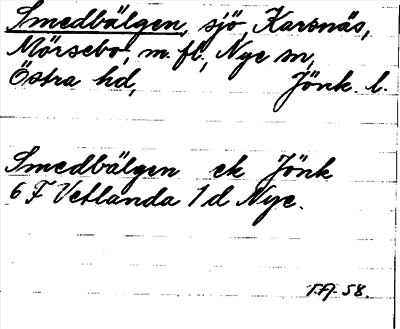 Smedbälgen, sjö, Karsnäs,
Mörsebo, m. fl., Nye sn,
Östra hd, Jönk. l.
Smedbälgen ek Jönk
6 F Vetlanda 1 d Nye.
58.